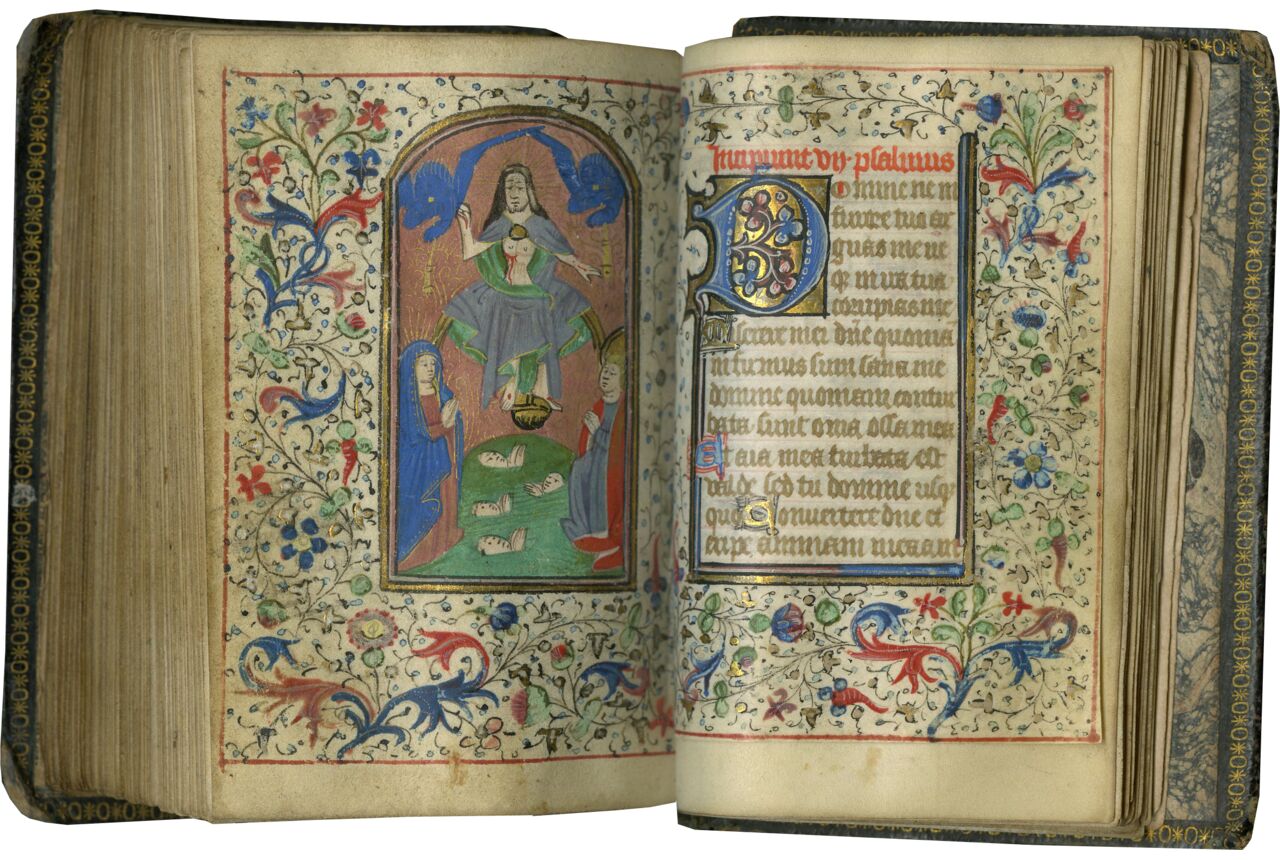 Incipiunt vij. psalmus
Domine ne in
furore tuo ar
guas me ne
qȝ in ira tua
corripias me
Miserere mei dn̄e quoniam
infirmus sum sana me
domine quoniam contur
bata sunt om̄ia ossa mea
Et aīa mea turbata est
valde sed tu domine usqȝ
quo Convertere dn̄e et
eripe animam meam